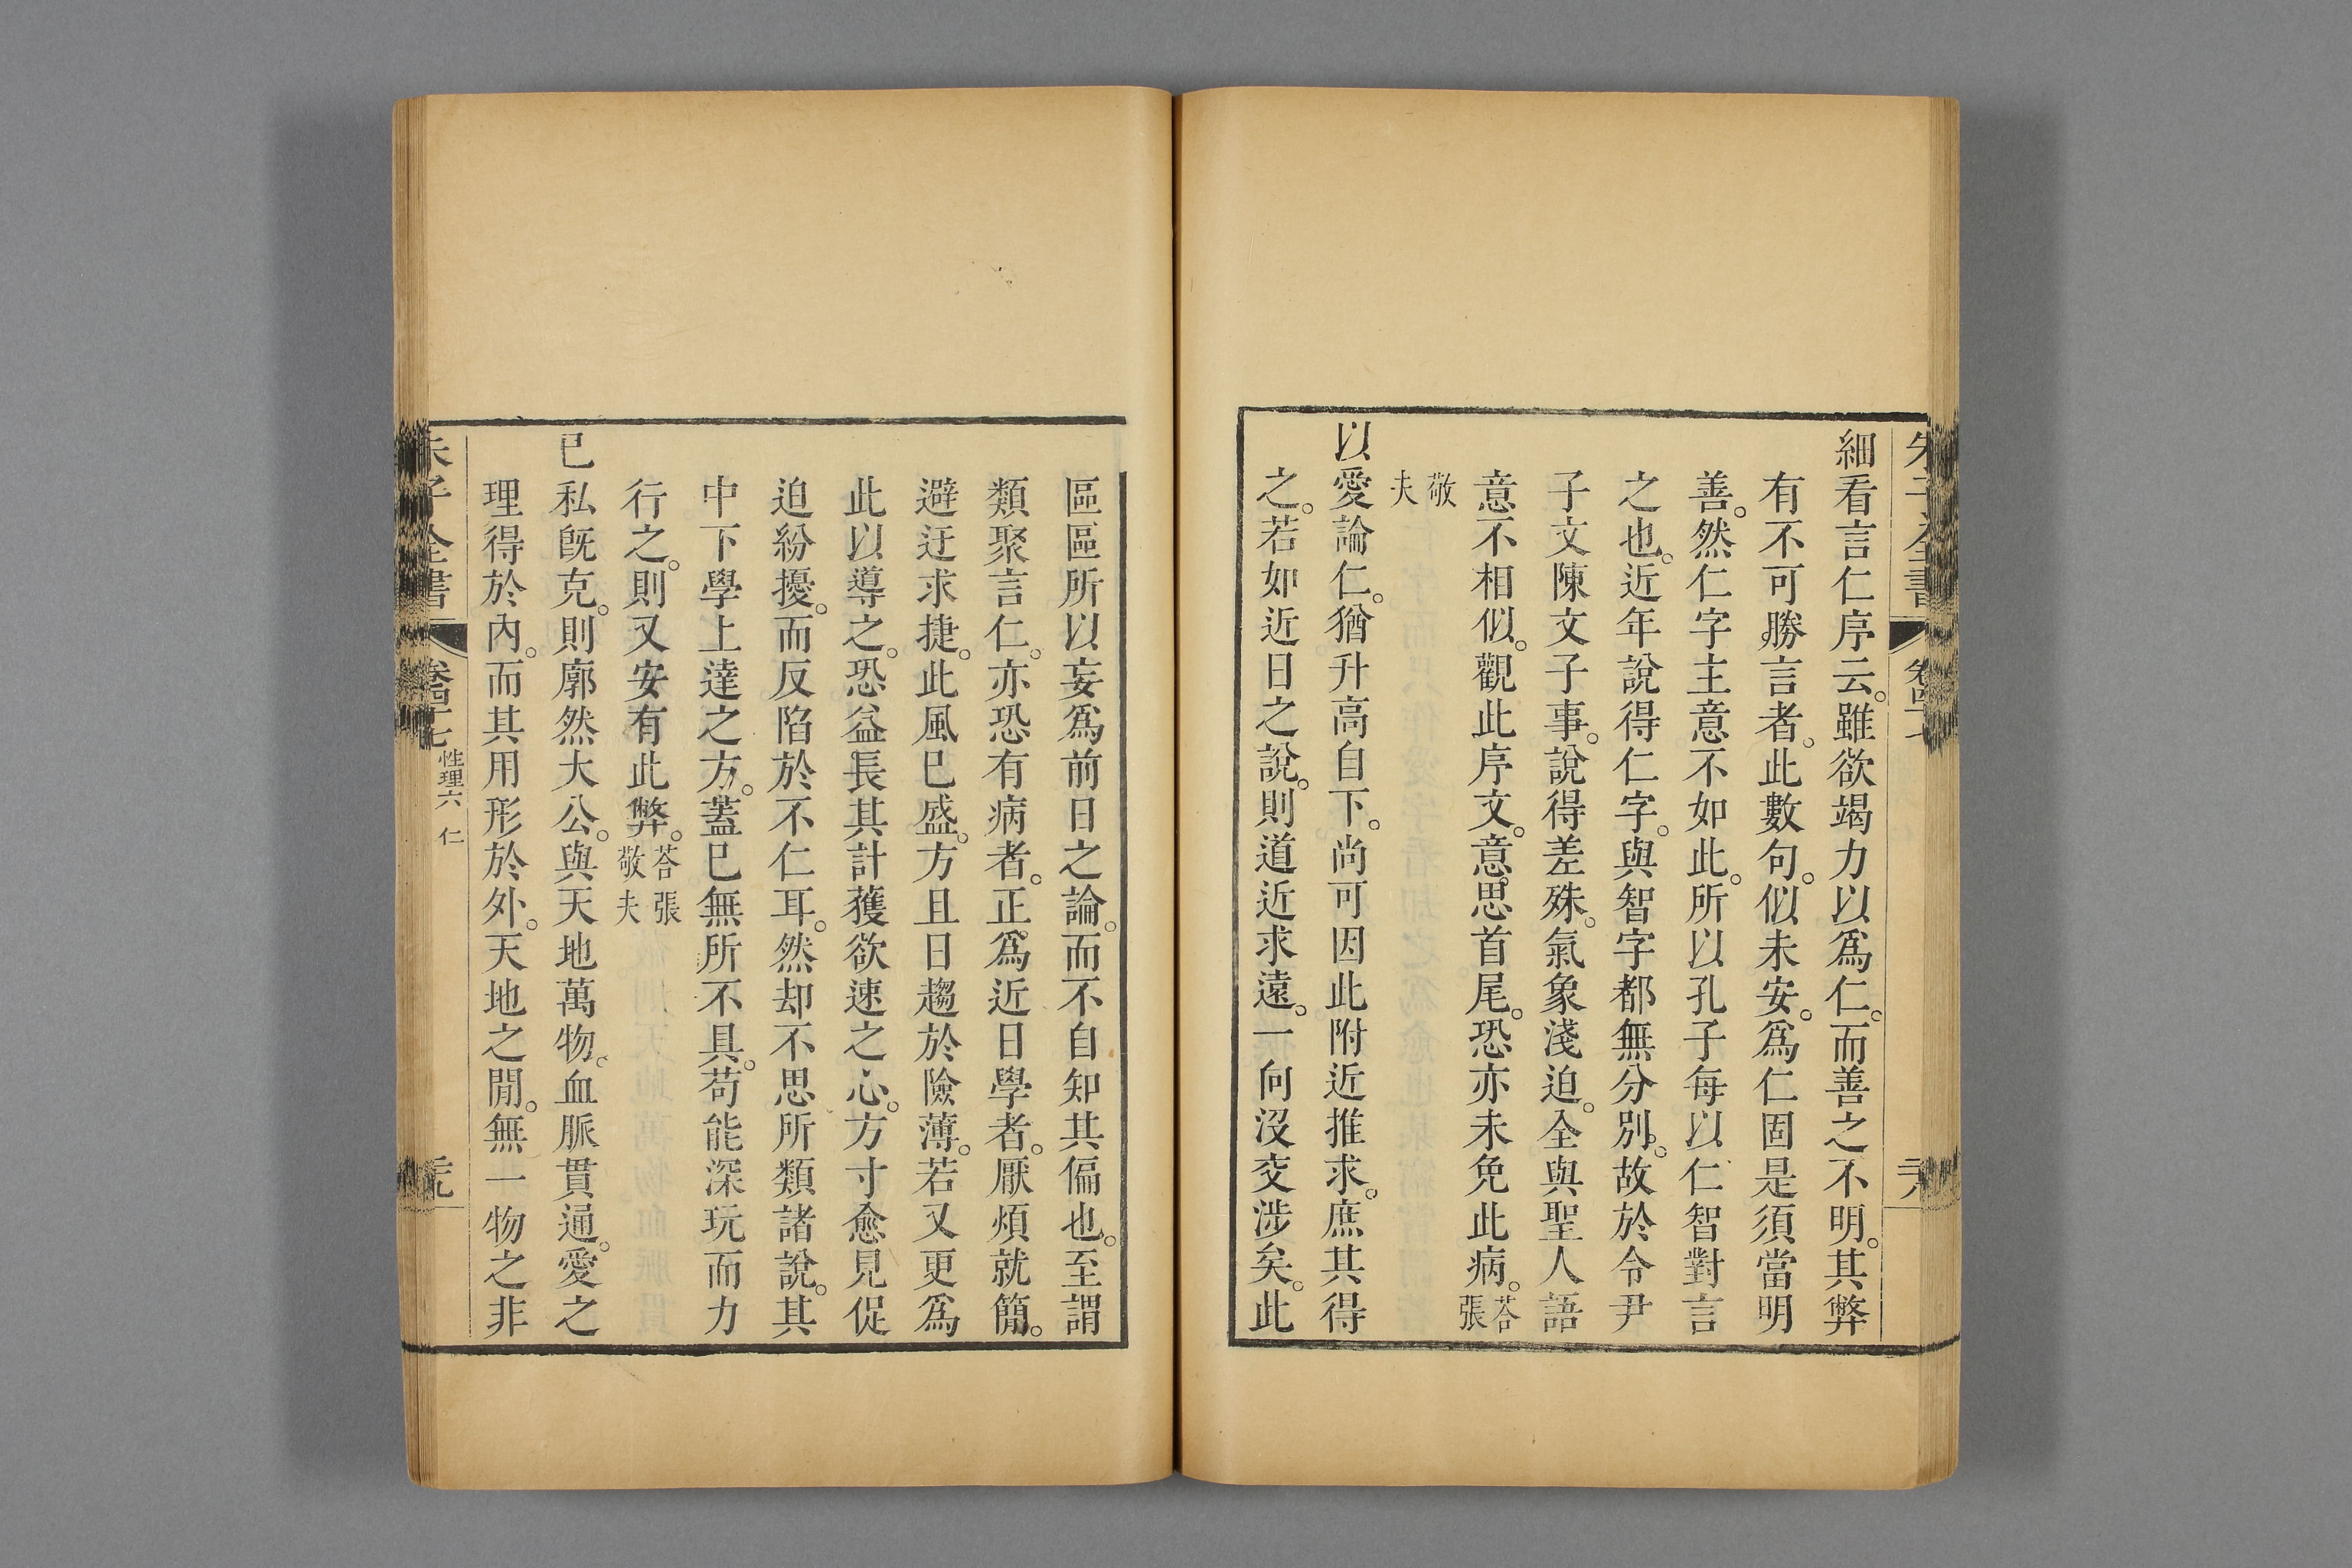 朱子全書 卷四十七 二八
細看言仁序云。雖欲竭力以爲仁。而善之不明。其弊
有不可勝言者。此數句。似未安。爲仁固是須當明
善。然仁字主意不如此。所以孔子每以仁智對言
之也。近年說得仁字。與智字都無分別。故於令尹
子文陳文子事。說得差殊。氣象淺迫。全與聖人語
意不相似。觀此序文。意思首尾。恐亦未免此病。荅張
敬夫
以愛論仁。猶升高自下。尚可因此附近推求。庶其得
之。若如近日之說。則道近求遠。一向沒交涉矣。此
區區所以妄爲前日之論。而不自知其偏也。至謂
類聚言仁。亦恐有病者。正爲近日學者。厭煩就簡。
避迂求捷。此風已盛。方且日趨於險薄。若又更爲
此以導之。恐益長其計獲欲速之心。方寸愈見促
迫紛擾。而反陷於不仁耳。然却不思所類諸說。其
中下學上達之方。蓋已無所不具。苟能深玩而力
行之。則又安有此弊。荅張敬夫
己私旣克。則廓然大公。與天地萬物。血脈貫通。愛之
理得於內。而其用形於外。天地之閒。無一物之非
朱子全書 卷四十七 性理六 仁 二九